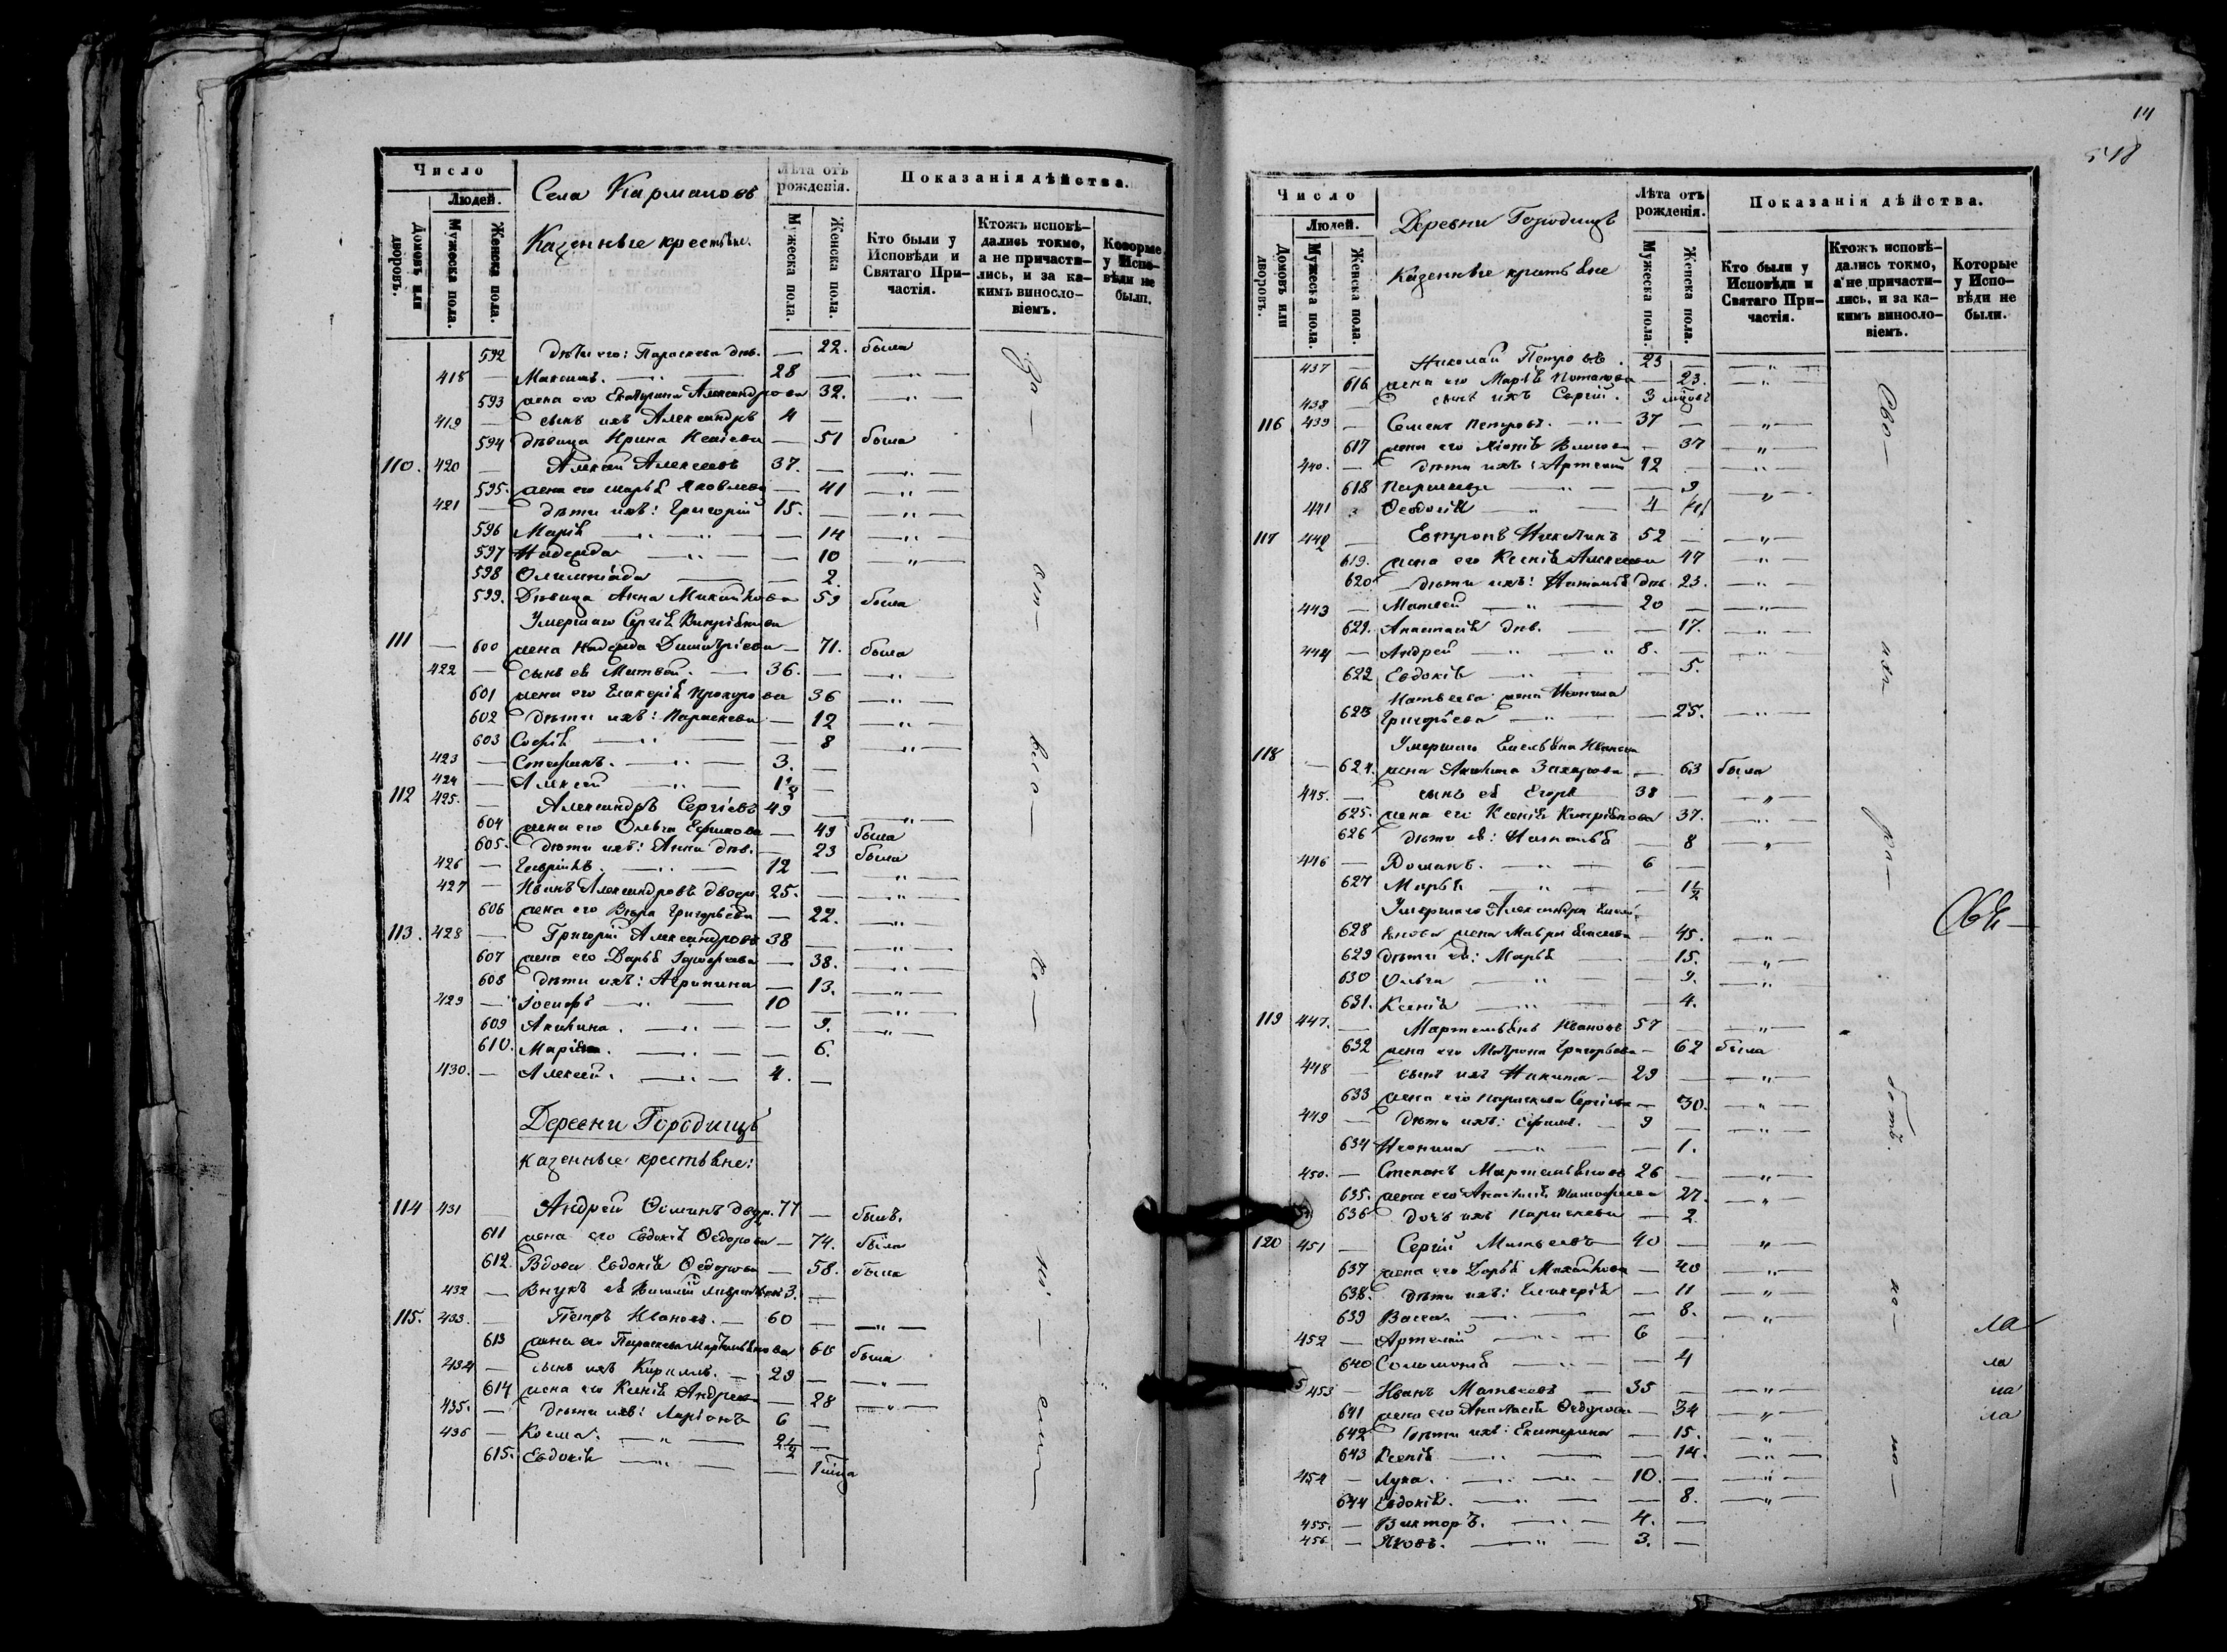 Число
Людей.
Домовъ или дворовъ.
Мужеска пола.
Женска пола.
Села Кармановъ
Казенные крестьяне.
Лѣта отъ рожденія.
Мужеска пола.
Женска пола.
Показанія дѣйства.
Кто были у Исповѣди и Святаго Причастія.
Ктожъ исповѣдались токмо, а не причастились, и за какимъ винословіемъ.
Которые у Исповѣди не были.
592 дѣти его: Параскева дѣв. — 22. была
418 — Максимъ. — „ — 28 — — „ —
593 жена его Екатерина Александрова 32. — „ —
419 — сынъ ихъ Александръ 4 —
594 дѣвица Ирина — 51 была
110. 420 — Алексѣй Алексѣевъ 37. — — „ —
595. жена его Марья Яковлева — 41 — „ —
421 — дѣти ихъ: Григорій 15. — — „ —
596 Марія — „ — „ — — 14 — „ —
597 Надежда — „ — — 10 — „ —
598 Олимпіада — — 2.
599. Дѣвица Анна Михайлова 59 была
Умершаго Сергѣя
111 — 600 жена Надежда Димитріева — 71. была
422 — сынъ ея Матвей. — 36. — — „ —
601 жена его Гликерія Прохорова 36 — „ —
602 дѣти ихъ: Параскева — 12 — „ —
603 Софія — „ — — 8 — „ —
423 — Стефанъ. — „ — 3. —
424 — Алексѣй — „ — 1½ —
112 425. — Александръ Сергіевъ 49 — — „ —
604 жена его Ольга Ефимова — 49 была
605. дѣти ихъ: Анна дѣв. — 23 была
426 — Гавріилъ. — „ — 12 — — „ —
427 — Иванъ Александровъ двоеж. 25. — — „ —
606 жена его Вѣра Григорьева — 22. — „ —
113. 428 — Григорій Александровъ 38 — — „ —
607 жена его Дарья — 38. — „ —
608 дѣти ихъ: Агрипина — 13. — „ —
429 — Іосифъ — „ — 10 — — „ —
609 Акилина. — „ — — 9. — „ —
610. — 6.
430. — Алексѣй. — „ — 4. —
Деревни Городищъ
казенные крестьяне:
114 431 — Андрей двуж. 77 — былъ.
611 жена его Евдокія Ѳедорова — 74. была
612. Вдова Евдокія Ѳедорова — 58. была
432 — Внукъ ея 3. —
115. 433. — Петръ Ивановъ. — 60 — — „ —
613 жена его Параскева Мартемьянова 60 была
434 — сынъ ихъ Кириллъ. — 29 — — „ —
614 жена его Ксенія Андреева — 28 — „ —
435. — дѣти ихъ: Ларіонъ 6 —
436 — Косма. — „ — 2½ —
615. Евдокія — „ — — 1
14
518
Число
Людей.
Домовъ или дворовъ.
Мужеска пола.
Женска пола.
Деревни Городищъ
Казенные крестьяне
Лѣта отъ рожденія.
Мужеска пола.
Женска пола.
Показанія дѣйства.
Кто были у Исповѣди и Святаго Причастія.
Ктожъ исповѣдались токмо, а не причастились, и за какимъ винословіемъ.
Которые у Исповѣди не были.
437 — Николай Петровъ. 23 — — „ —
616 жена его Марія Потапова — 23. — „ —
438 — сынъ ихъ Сергій. 3
116 439 — Семенъ Петровъ. — „ — 37 — — „ —
617 жена его — 37 — „ —
440. — дѣти ихъ: Артемій 12 — — „ —
618 Параскева — „ — — 9 — „ —
441 Ѳеодосій — „ 4
117 442 — Никитинъ 52 — — „ —
619. жена его Ксенія Алексеева 47 — „ —
620 дѣти ихъ: Наталія дѣв. 23. — „ —
443 — Матвей — „ — 20 — — „ —
621. Анастасія дѣв. — — 17. — „ —
444 — Андрей — „ — „ 8. — — „ —
622 Евдокія — „ — — 5.
Матвеева жена
623 Григорьева — „ — — 25. — „ —
Умершаго Емельяна Иванова
118 — 624. жена Акилина Захарова — 63 была
445. — сынъ ея Егоръ 38 — „ —
625. жена его Ксенія 37. — „ —
626 дѣти ея: Наталья — 8 — „ —
446 — Романъ. — „ — 6 —
627 Марья — „ — — 1½
Умершаго Александра
628 жена Мавра — 45. — „ —
629 дѣти ея: Марья — — 15. — „ —
630 Ольга — „ — — 9. — „ —
631. Ксенія — „ — — 4.
119 447. — Мартемьянъ Ивановъ 57 — — „ —
632 жена его Матрона Григорьева — 62 была
448 — сынъ ихъ Никита — 29 — — „ —
633 жена его Параскева Сергіева — 30. — „ —
449 — дѣти ихъ: Ефимъ. — 9 — — „ —
634 — „ — — 1.
450. — Степанъ Мартемьяновъ 26 — — „ —
635. жена его Анастасія Тимофеева 27. — „ —
636 дочь ихъ Параскева — 2.
120 451 — Сергій Матвеевъ — 40 — „ —
637 жена его Дарья Михайлова — 40 — „ —
638. дѣти ихъ: Гликерія — 11 — „ —
639 Васса. — „ — — 8. — „ —
452 — Артемій — „ — 6 —
640 Соломонія — „ — — 4
453 — Иванъ Матвеевъ — 35 — — „ —
641 жена его Анастасія Ѳедорова — 34 — „ —
642 дѣти ихъ: Екатерина — 15. — „ —
643 Ксенія — „ — — 14. — „ —
454 — Лука. — „ — „ — 10. — — „ —
644 Евдокія. — „ — — 8. — „ —
455. — Викторъ. — „ — 4. —
456 — Яковъ. — „ — 3. —
ла
ла
ла
ла